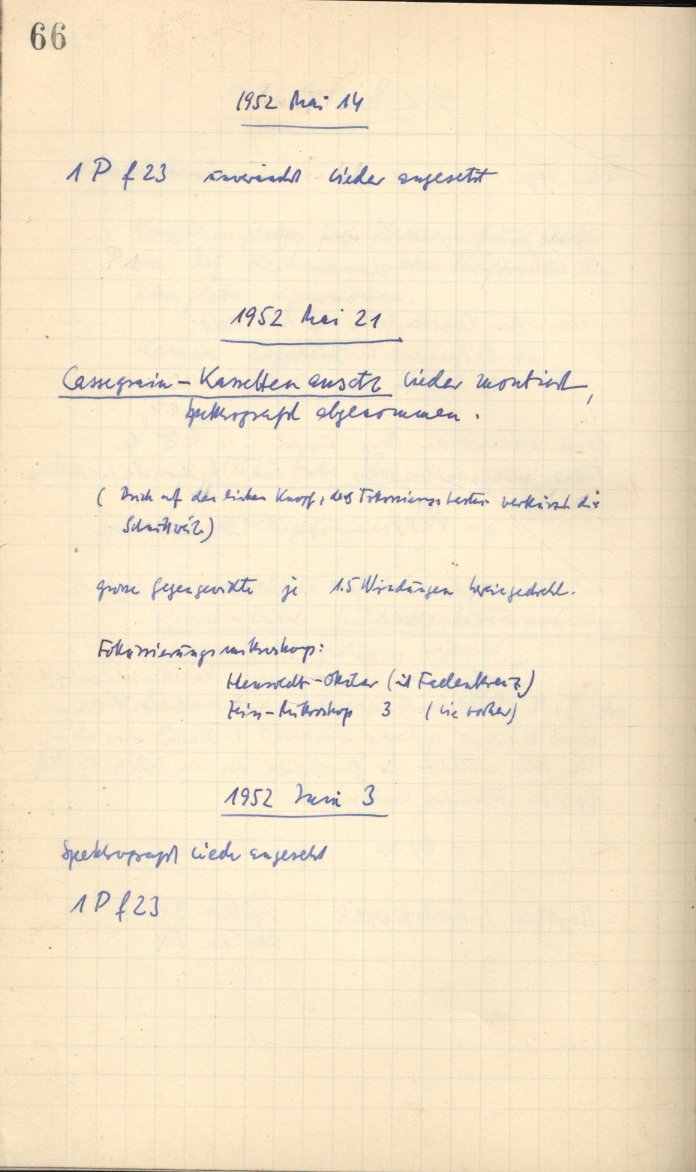 66
1952 Mai 14
1 P f 23 unverändert wieder angesetzt
1952 Mai 21
Cassegrain – Kassettenansatz wieder montiert,
Spektrograph abgenommen.
( Druck auf den linken Knopf des Fokussierungstasters verkürzt die
Schnittweite)
grosse Gegengewichte je 1.5 Windungen hereingedreht.
Fokussierungsmikroskop:
Hensoldt-Okular (mit Fadenkreuz)
Zeiss-Mikroskop 3 (wie vorher)
1952 Juni 3
Spektrograph wieder angesetzt
1 P f 23